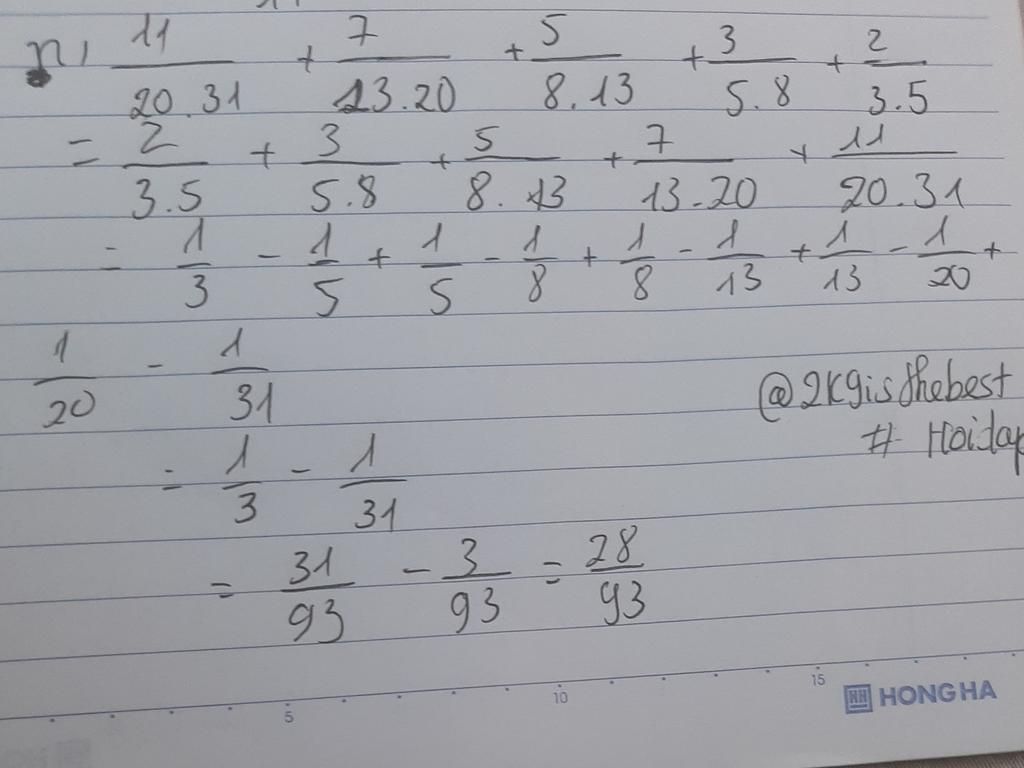 n, 11/20.31 + 7/13.20 + 5/8.13 + 3/5.8 + 2/3.5
= 2/3.5 + 3/5.8 + 5/8.13 + 7/13.20 + 11/20.31
= 1/3 - 1/5 + 1/5 - 1/8 + 1/8 - 1/13 + 1/13 - 1/20 +
1/20 - 1/31
@2K9isthebest
# Hoidap
= 1/3 - 1/31
= 31/93 - 3/93 = 28/93
5 10 15
HH HONG HA